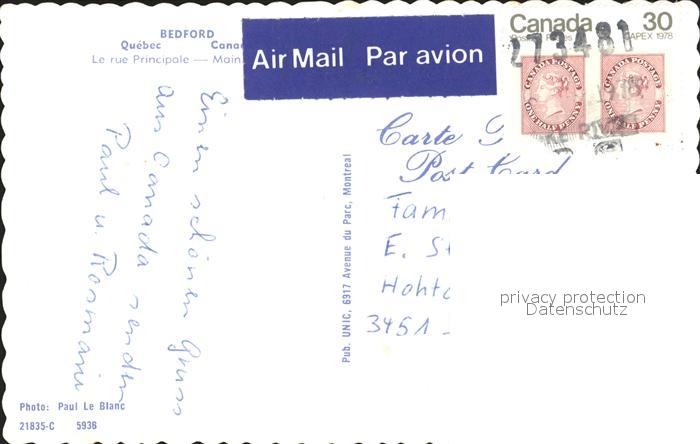 BEDFORD
Québec Cana
Le rue Principale — Main
Air Mail Par avion
Canada 30
CAPEX 1978
273481
CANADA POSTAGE
ONE HALF PENNY
CANADA POSTAGE
ONE HALF PENNY
Carte
Post Card
Einen schönen Gruss
aus Canada senden
Paul u. Rosmarie
Pub. UNIC, 6917 Avenue du Parc, Montreal
Fam
E. St
Hohto
3451
privacy protection
Datenschutz
Photo: Paul Le Blanc
21835-C 5936